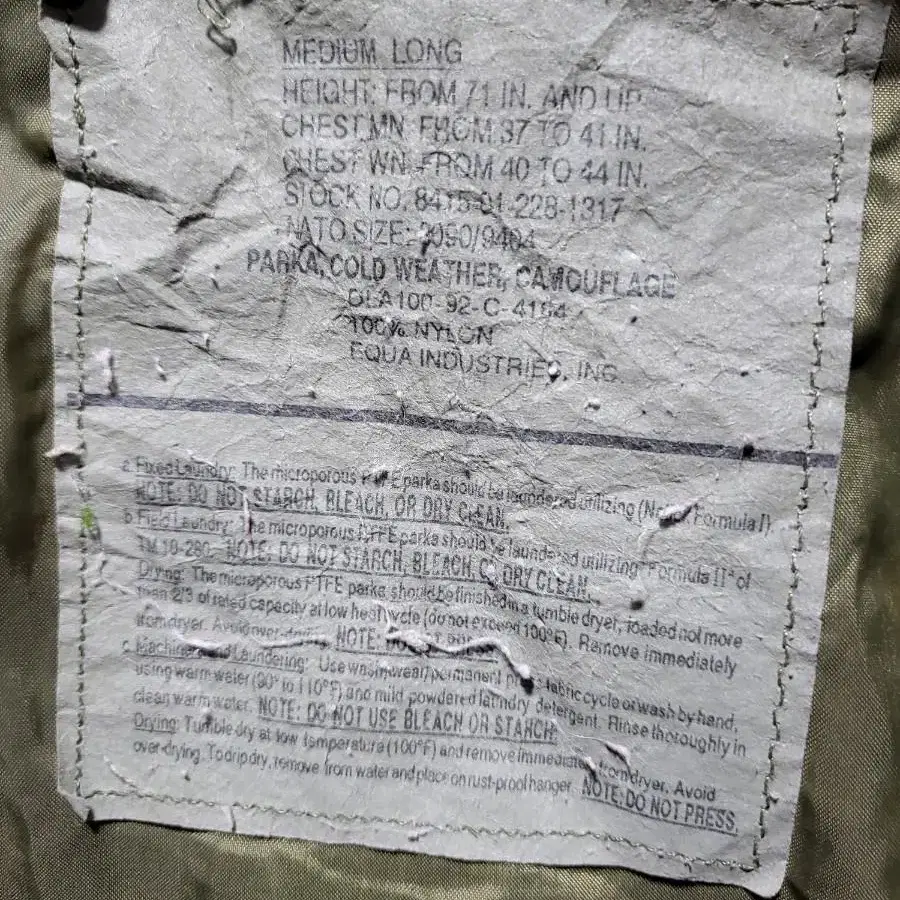 MEDIUM LONG
HEIGHT: FROM 71 IN. AND UP
CHEST MN. FROM 37 TO 41 IN.
CHEST WN. FROM 40 TO 44 IN.
STOCK NO. 8415-01-228-1317
NATO SIZE: 9404
PARKA, COLD WEATHER, CAMOUFLAGE
DLA100-92-C-
100% NYLON
EQUA INDUSTRIES, INC.
a Fixed Laundry: The microporous PTFE parka should be laundered utilizing (Formula I).
NOTE: DO NOT STARCH, BLEACH, OR DRY CLEAN.
b Field Laundry: The microporous PTFE parka should be laundered utilizing "Formula II" of
TM 10-280. NOTE: DO NOT STARCH, BLEACH, OR DRY CLEAN.
Drying: The microporous PTFE parka should be finished in a tumble dryer, loaded not more
than 2/3 of rated capacity at low heat cycle (do not exceed 100°F). Remove immediately
from dryer. Avoid over-drying. NOTE: DO NOT
c. Machine Laundering: Use wash-wear/permanent press fabric cycle or wash by hand,
using warm water (90° to 110°F) and mild powdered laundry detergent. Rinse thoroughly in
clean warm water. NOTE: DO NOT USE BLEACH OR STARCH.
Drying: Tumble dry at low temperature (100°F) and remove immediately from dryer. Avoid
over-drying. To drip dry, remove from water and place on rust-proof hanger. NOTE: DO NOT PRESS.